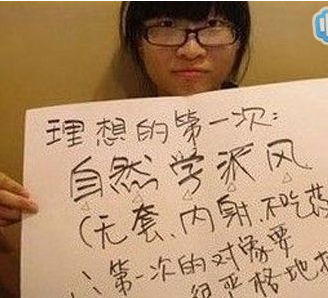 理想的第一次：
自然学派风
（无套、内射、不吃药
第一次的对象要
经严格地